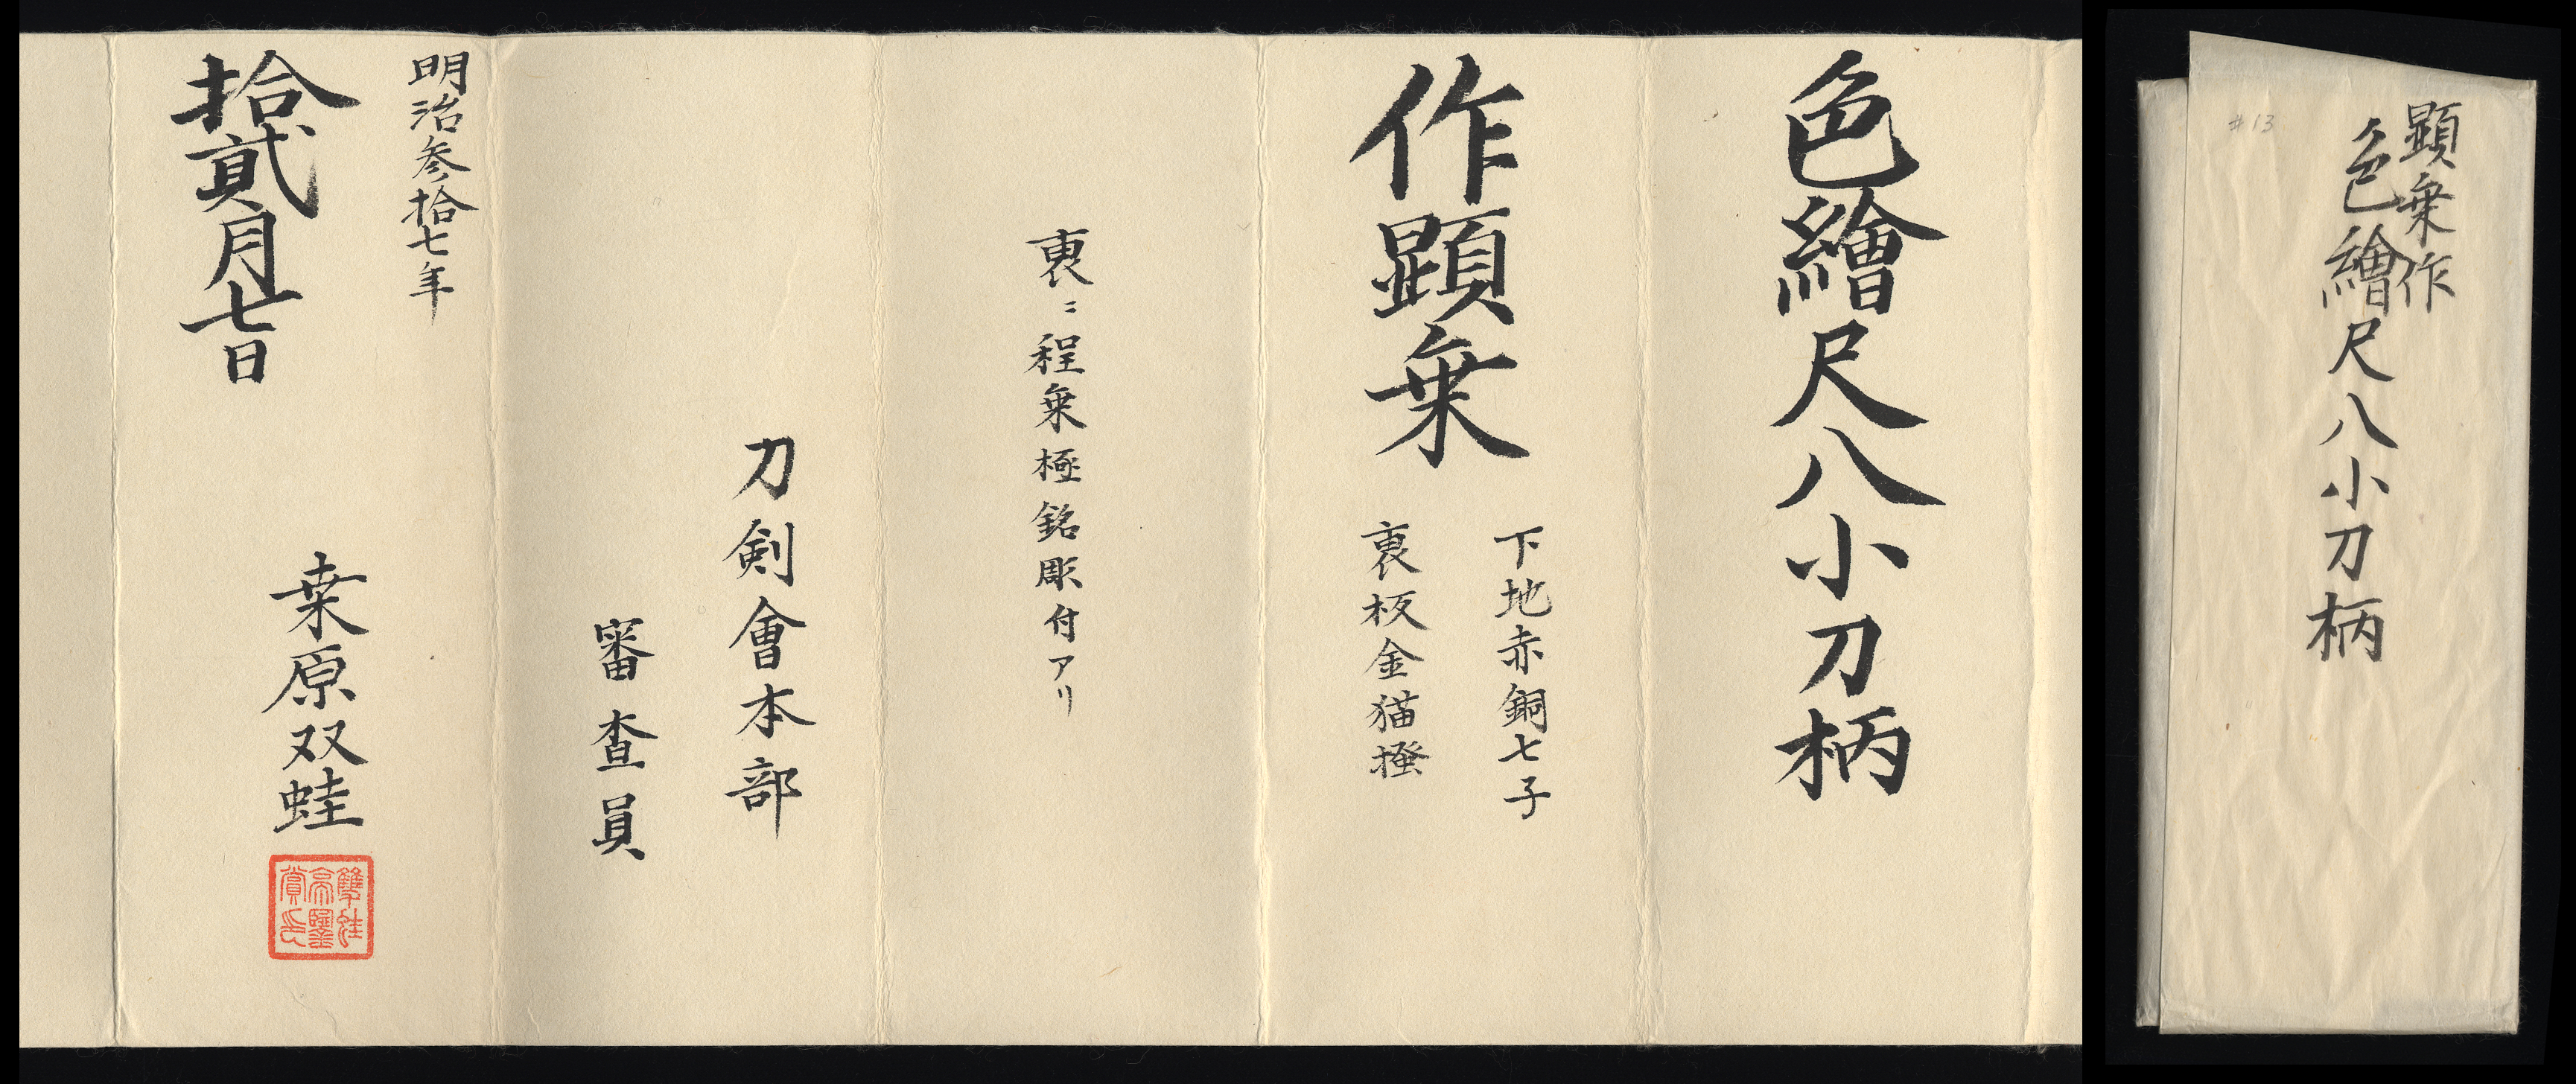 色繪尺八小刀柄
作顕乗
下地赤銅七子
裏板金猫掻
裏ニ程乗極銘彫付アリ
刀剣會本部
審査員
明治参拾七年
拾貳月七日
桒原双蛙
顕乗作
色繪尺八小刀柄
#13